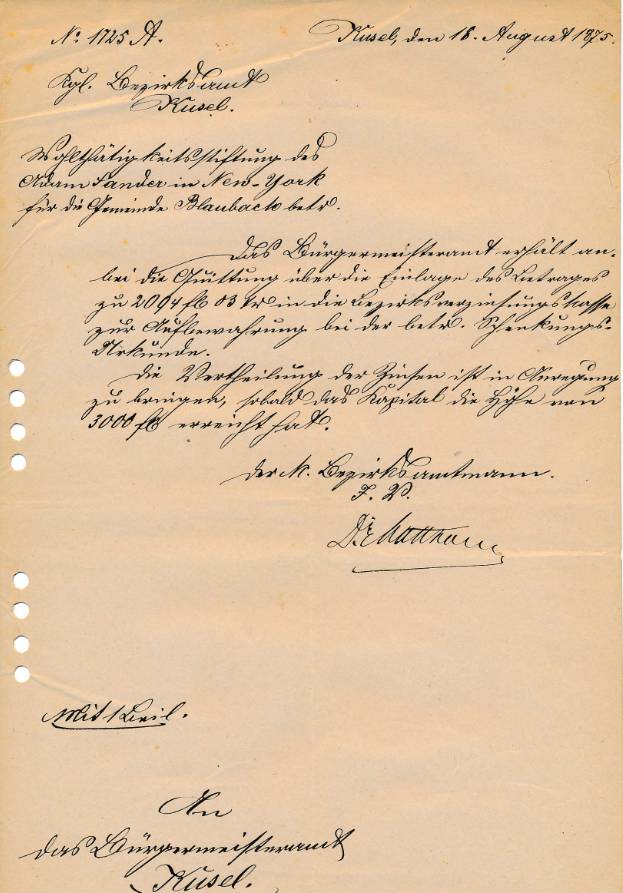 No. 1725 A.
Kusel, den 18. August 1875.
Kgl. Bezirksamt
Kusel.
Wohlthätigkeitsstiftung des
Adam Sander in New-York
für die Gemeinde Blaubach betr.
Das Bürgermeisteramt erhält an-
bei die Quittung über die Einlage des Betrages
zu 2094 fl 03 kr in die Bezirksverzinsungskasse
zur Aufbewahrung bei der betr. Schenkungs-
Urkunde.
Die Vertheilung der Zinsen ist in Anregung
zu bringen, sobald das Kapital die Höhe von
3000 fl erreicht hat.
Der k. Bezirksamtmann.
I. V.
Mit 1 Beil.
An
das Bürgermeisteramt
Kusel.